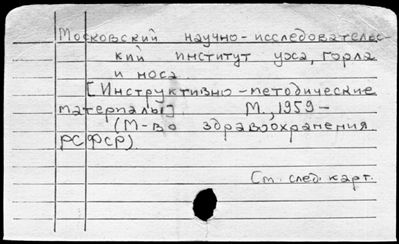 Московский научно-исследователь-
ский институт уха, горла
и носа.
[Инструктивно-методические
материалы]. М., 1959-
(М-во здравоохранения
РСФСР)
См. след. карт.